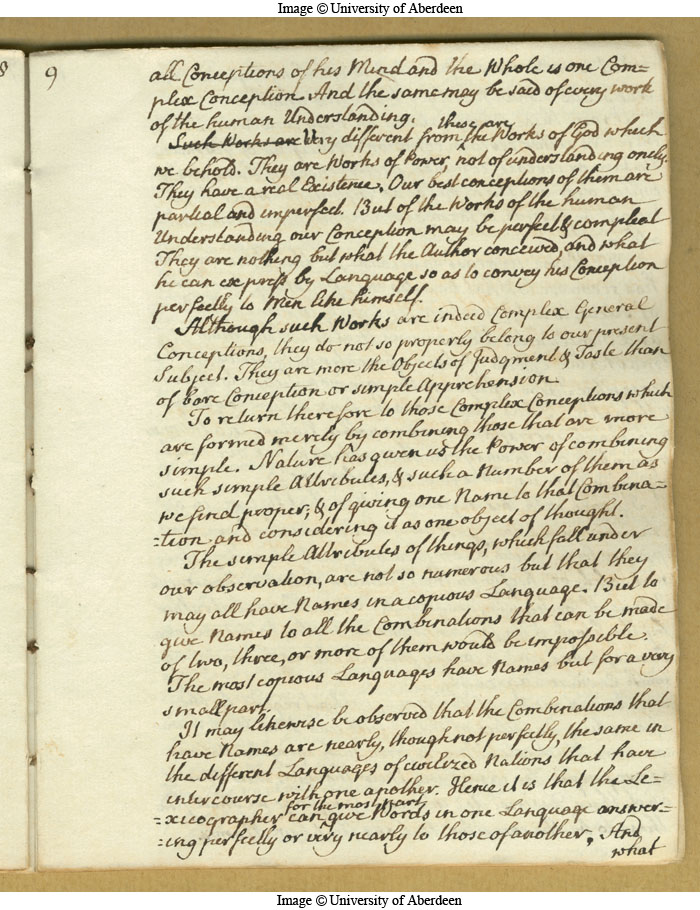 Image © University of Aberdeen
8
9
all Conceptions of his Mind and the Whole is one Com=
plex Conception And the same may be said of every work
of the human Understanding.
these are
Such Works are Very different from the Works of God which
we behold. They are Works of Power, not of understanding onely.
They have a real Existence, Our best conceptions of them are
partial and imperfect. But of the Works of the human
Understanding our Conception may be perfect & compleat
They are nothing but what the Author conceived, and what
he can express by Language so as to convey his Conception
perfectly to Men like himself.
Although such Works are indeed Complex General
Conceptions, they do not so properly belong to our present
Subject. They are more the Objects of Judgment & Taste than
of bare Conception or simple Apprehension
To return therefore to those Complex Conceptions which
are formed merely by combining those that are more
simple. Nature has given us the Power of combining
such simple Attributes, & such a Number of them as
we find proper; & of giving one Name to that Combina=
=tion and considering it as one object of thought.
The simple Attributes of things, which fall under
our observation, are not so numerous but that they
may all have Names in a copious Language. But to
give Names to all the Combinations that can be made
of two, three, or more of them would be impossible.
The most copious Languages have Names but for a very
small part.
It may likewise be observed that the Combinations that
have Names are nearly, though not perfectly, the same in
the different Languages of civilized Nations that have
intercourse with one another. Hence it is that the Le=
for the most part
=xicographer can give Words in one Language answer=
=ing perfectly or very nearly to those of another, And
what
Image © University of Aberdeen